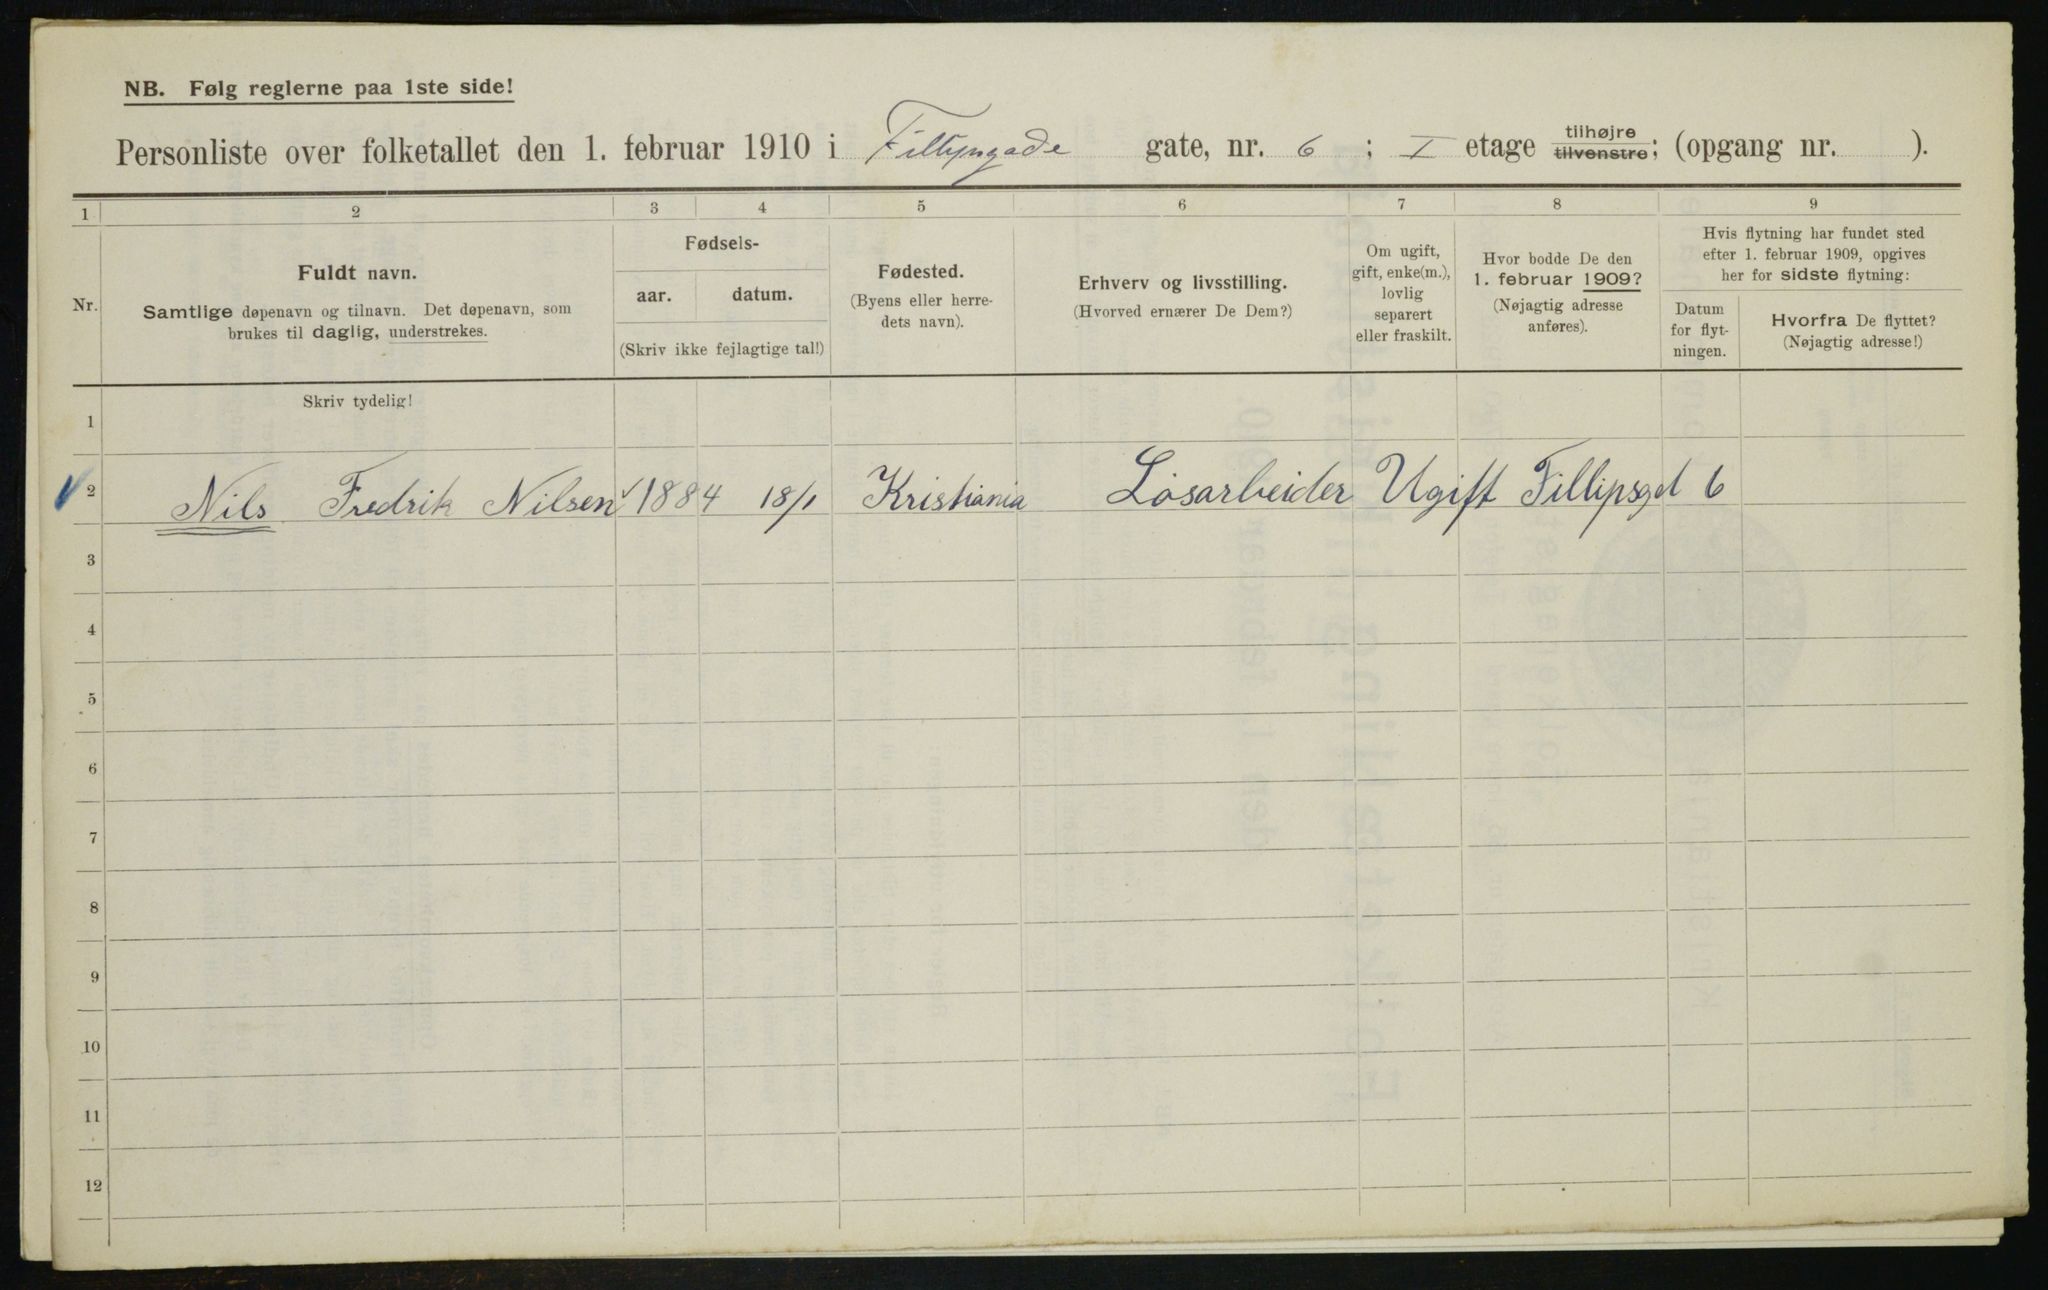 NB. Følg reglerne paa 1ste side!
Personliste over folketallet den 1. februar 1910 i Fillipsgade gate, nr. 6 ; I etage tilhøjre tilvenstre; (opgang nr. ).
1 2 3 4 5 6 7 8 9
Nr.
Fuldt navn.
Samtlige døpenavn og tilnavn. Det døpenavn, som
brukes til daglig, understrekes.
Fødsels-
aar. datum.
(Skriv ikke fejlagtige tal!)
Fødested.
(Byens eller herre-
dets navn).
Erhverv og livsstilling.
(Hvorved ernærer De Dem?)
Om ugift,
gift, enke(m.),
lovlig
separert
eller fraskilt.
Hvor bodde De den
1. februar 1909?
(Nøjagtig adresse
anføres).
Hvis flytning har fundet sted
efter 1. februar 1909, opgives
her for sidste flytning:
Datum
for flyt-
ningen.
Hvorfra De flyttet?
(Nøjagtig adresse!)
Skriv tydelig!
1
2 Nils Fredrik Nilsen 1884 18/1 Kristiania Løsarbeider Ugift Fillipsgd 6
3
4
5
6
7
8
9
10
11
12